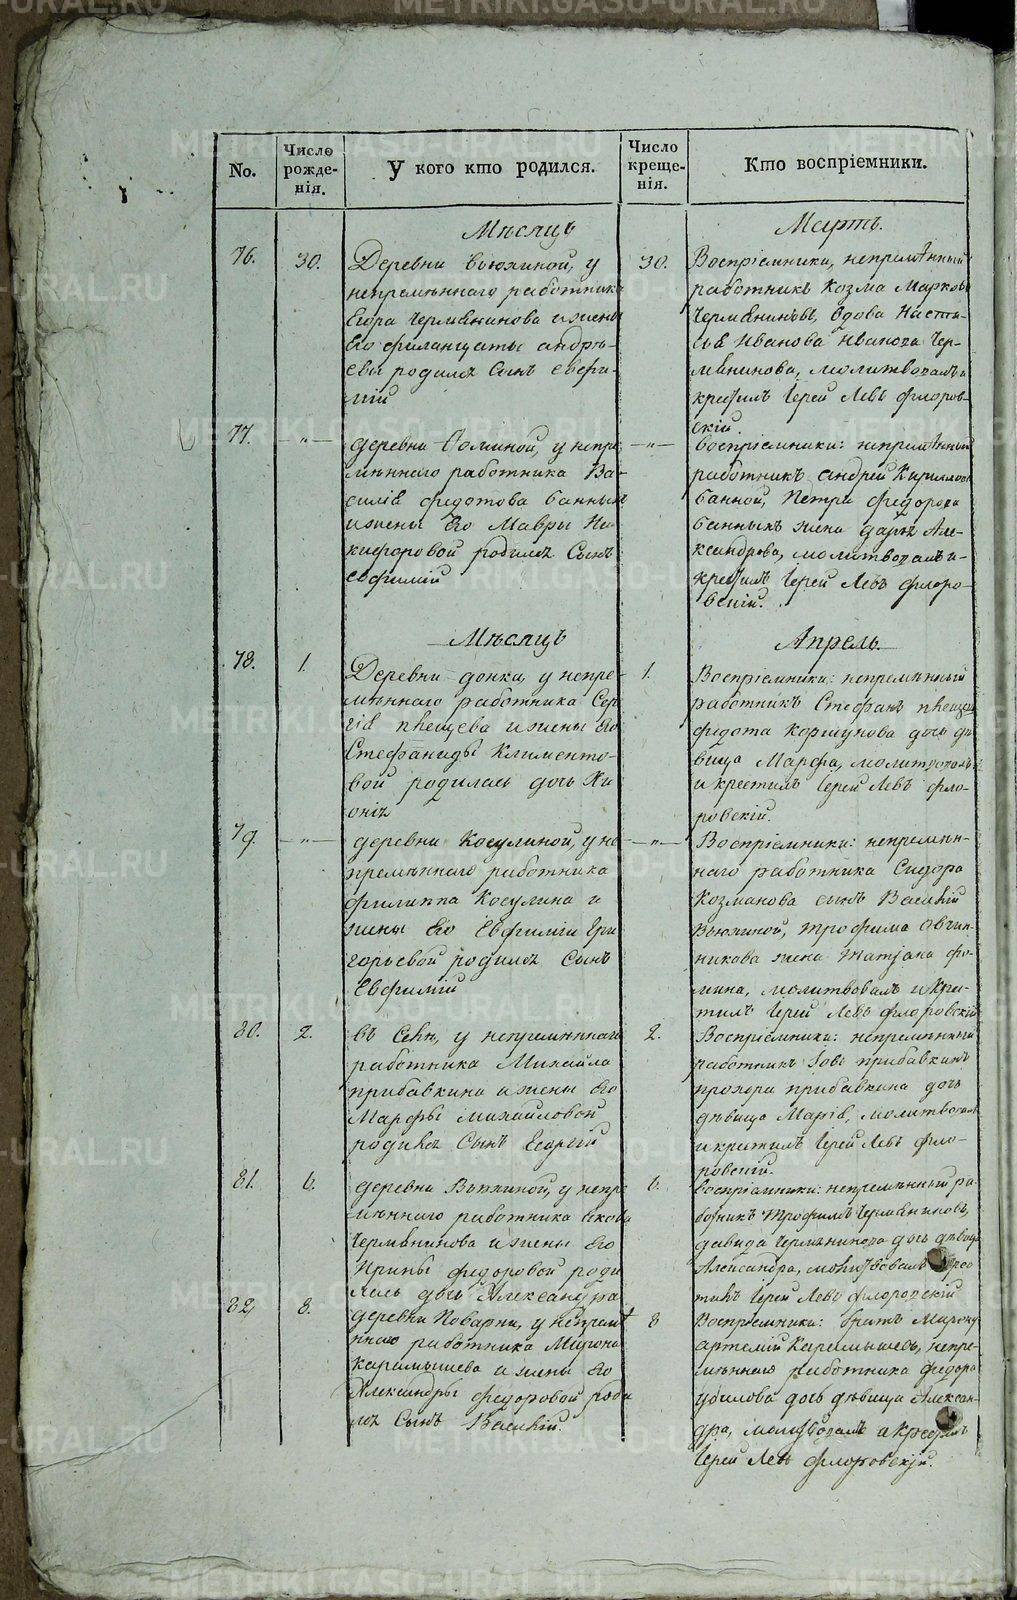 No.
Число рожде-нія.
У кого кто родился.
Число креще-нія.
Кто воспріемники.
Мѣсяцъ
Мартъ.
76.
30.
Деревни Вьюхиной, у
непремѣннаго работника
Егора Черемѣнинова и жены
Его
родился Сынъ Евфи-
мій
30.
Воспріемники, непремѣнный
работникъ Козма Марковъ
вдова Наста-
сья Иванова
молитвовалъ и
крестилъ Іерей Левъ Флоров-
скій.
77.
—"—
деревни у непре-
мѣннаго работника Ва-
силія Федотова Банныхъ
и жены Его Мавры Ни-
кифоровой родился Сынъ
Евфимій
—"—
Воспріемники: непремѣнный
работникъ Андрей Кирилловъ
Банной, Петра Федорова
Банныхъ жена Дарья Але-
ксандрова, молитвовалъ и
крестилъ Іерей Левъ Флоро-
вскій.
Мѣсяцъ
Апрель.
78.
1.
Деревни у непре-
мѣннаго работника Сер-
гія и жены Его
Стефаниды Климентo-
вой родилась дочь Хи
онія
1.
Воспріемники: непремѣнный
работникъ Стефанъ
Федота Коршунова дочь дѣ
вица Марфа, молитвовалъ
и крестилъ Іерей Левъ Фло-
ровскій.
79.
—"—
деревни Косулиной, у не-
премѣннаго работника
Филиппа Косулина и
жены Его Евфиміи Гри
горьевой родился Сынъ
Евфимій
—"—
Воспріемники: непремѣн-
наго работника Сидора
Козманова сынъ Василій
Вьюхиной, Трофима Овчин-
никова жена Татіана Фо-
мина, молитвовалъ и Кре-
тилъ Іерей Левъ Флоровскій
80.
2.
Въ Селѣ, у непремѣннаго
работника Михайла
Прибавкина и жены Его
Марфы Михайловой
родился Сынъ Георгій
2.
Воспріемники: непремѣнный
работникъ Іовъ Прибавкинъ
Прохора Прибавкина дочь
дѣвица Марія, молитвовалъ
и крестилъ Іерей Левъ Фло-
ровскій.
81.
6.
деревни Вьюхиной, у непре
мѣннаго работника Якова
Черемѣнинова и жены Его
Ирины Федоровой роди
лась дочь Александра
6.
Воспріемники: непремѣнный ра-
ботникъ Трофимъ Черемѣниновъ,
Давида Черемѣнинова дочь дѣвица
Александра, молитвовалъ и крес
тилъ Іерей Левъ Флоровскій
82.
8.
деревни Поварни, у непремѣ
ннаго работника Мирона
Карамышева и жены Его
Александры Федоровой роди
лся Сынъ Василій.
8
Воспріемники: братъ Мирону
Артемій Карамышевъ, непре-
мѣннаго работника Федора
Убилова дочь дѣвица Алексан-
дра, молитвовалъ и Крестилъ
Іерей Левъ Флоровскій.
METRIKI.GASO-URAL.RU